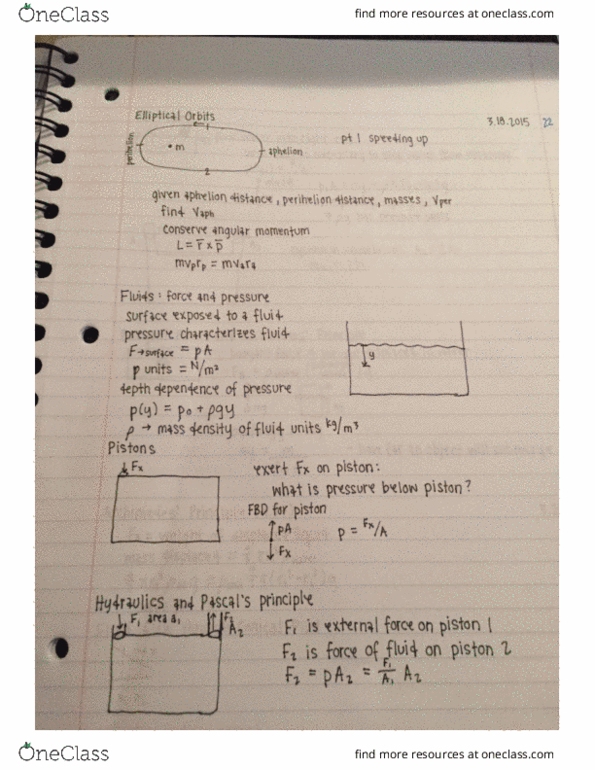 OneClass
find more resources at oneclass.com
Elliptical Orbits
3.18.2015 22
perihelion
1
m
aphelion
2
pt 1 speeding up
given aphelion distance, perihelion distance, masses, Vper
find Vaph
conserve angular momentum
L = r̄ x p̄
mvprp = mvara
Fluids: force and pressure
surface exposed to a fluid
pressure characterizes fluid
F→surface = pA
p units = N/m²
depth dependence of pressure
p(y) = p₀ + ρgy
ρ → mass density of fluid units kg/m³
y
Pistons
Fx
exert Fx on piston:
what is pressure below piston?
FBD for piston
pA
Fx
p = Fx/A
Hydraulics and Pascal's principle
F₁ area A₁
F₂
A₂
F₁ is external force on piston 1
F₂ is force of fluid on piston 2
F₂ = pA₂ = F₁/A₁ A₂
OneClass
find more resources at oneclass.com